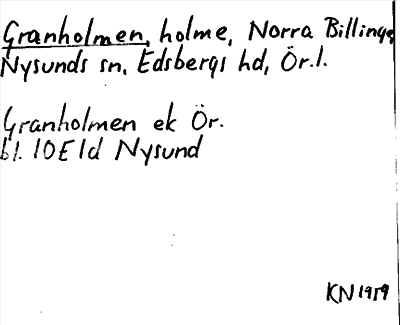 Granholmen, holme, Norra Billinge,
Nysunds sn, Edsbergs hd, Ör.l.
Granholmen ek Ör.
bl. 10E1d Nysund
KN 1959